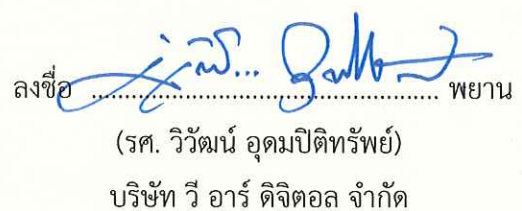 ลงชื่อ ........................................ พยาน
(รศ. วิวัฒน์ อุดมปิติทรัพย์)
บริษัท วี อาร์ ดิจิตอล จำกัด